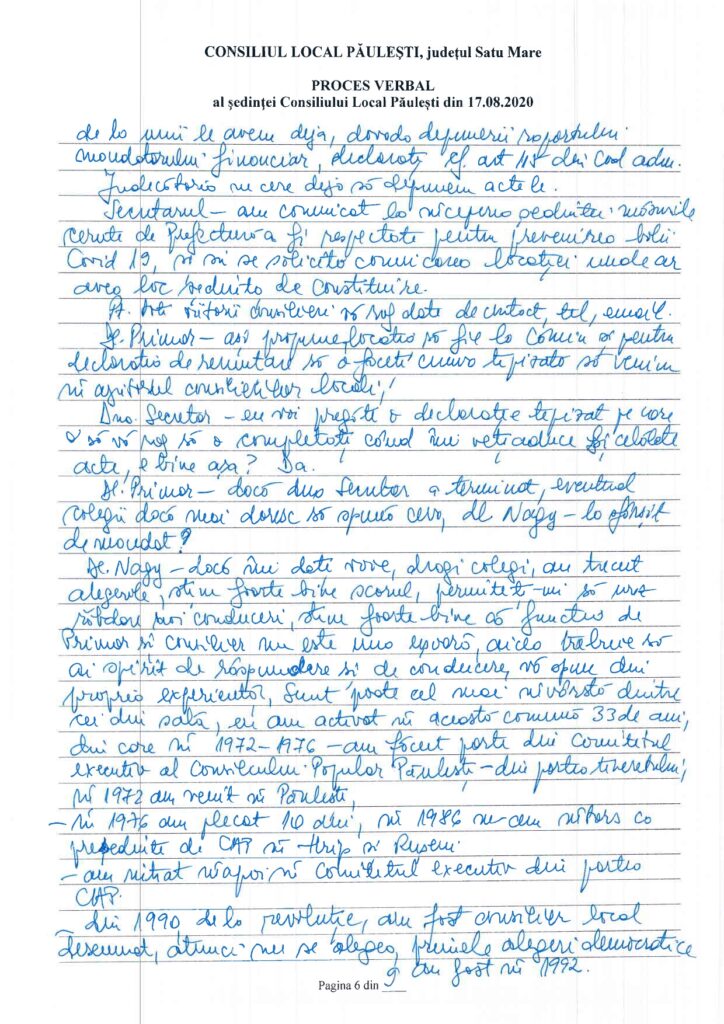 CONSILIUL LOCAL PĂULEȘTI, județul Satu Mare
PROCES VERBAL
al ședinței Consiliului Local Păulești din 17.08.2020
de la unii le avem deja, dovada depunerii raportului
mandatarului financiar, declarații, cf art 48 din Cod adm.
Judecătoria ne cere deja să depunem actele.
Secretarul – am comunicat la începerea ședinței măsurile
cerute de Prefectură a fi respectate pentru prevenirea bolii
Covid 19, și mi se solicită comunicarea locației unde ar
avea loc ședința de Constituire.
Pt. toți viitorii consilieri vă rog date de contact, tel, email.
Dl. Primar – aș propune locația să fie la Cămin și pentru
declarația de renunțare să o faceți cumva tipizată să venim
în ajutorul consilierilor locali,
Dna. Secretar – eu voi pregăti o declarație tipizat pe care
să vă rog să o completați când îmi veți aduce și celelalte
acte, e bine așa? Da.
Dl. Primar – dacă dna Secretar a terminat, eventual
colegii dacă mai doresc să spună ceva, dl Nagy – la sfârșit
de mandat?
Dl. Nagy – dacă îmi dați voie, dragi colegi, au trecut
alegerile, știm foarte bine scorul, permiteți-mi să urez
noii conduceri, știm foarte bine că funcția de
Primar și consilier nu este una ușoară, aicea trebuie să
ai spirit de răspundere și de conducere, vă spun din
propria experiență, Sunt poate cel mai în vârstă dintre
cei din sală, eu am activat în această comună 33 de ani,
din care în 1972–1976 – am făcut parte din Comitetul
executiv al Consiliului Popular Păulești – din partea tineretului,
în 1972 am venit în Păulești,
– în 1976 am plecat 10 ani, în 1986 m-am întors ca
președinte de CAP în Hrip și Rușeni
– am intrat înapoi în Comitetul executiv din partea
CAP.
Din 1990 de la revoluție, am fost consilier local
desemnat, atunci nu se alegea, primele alegeri democratice
au fost în 1992.
Pagina 6 din 9